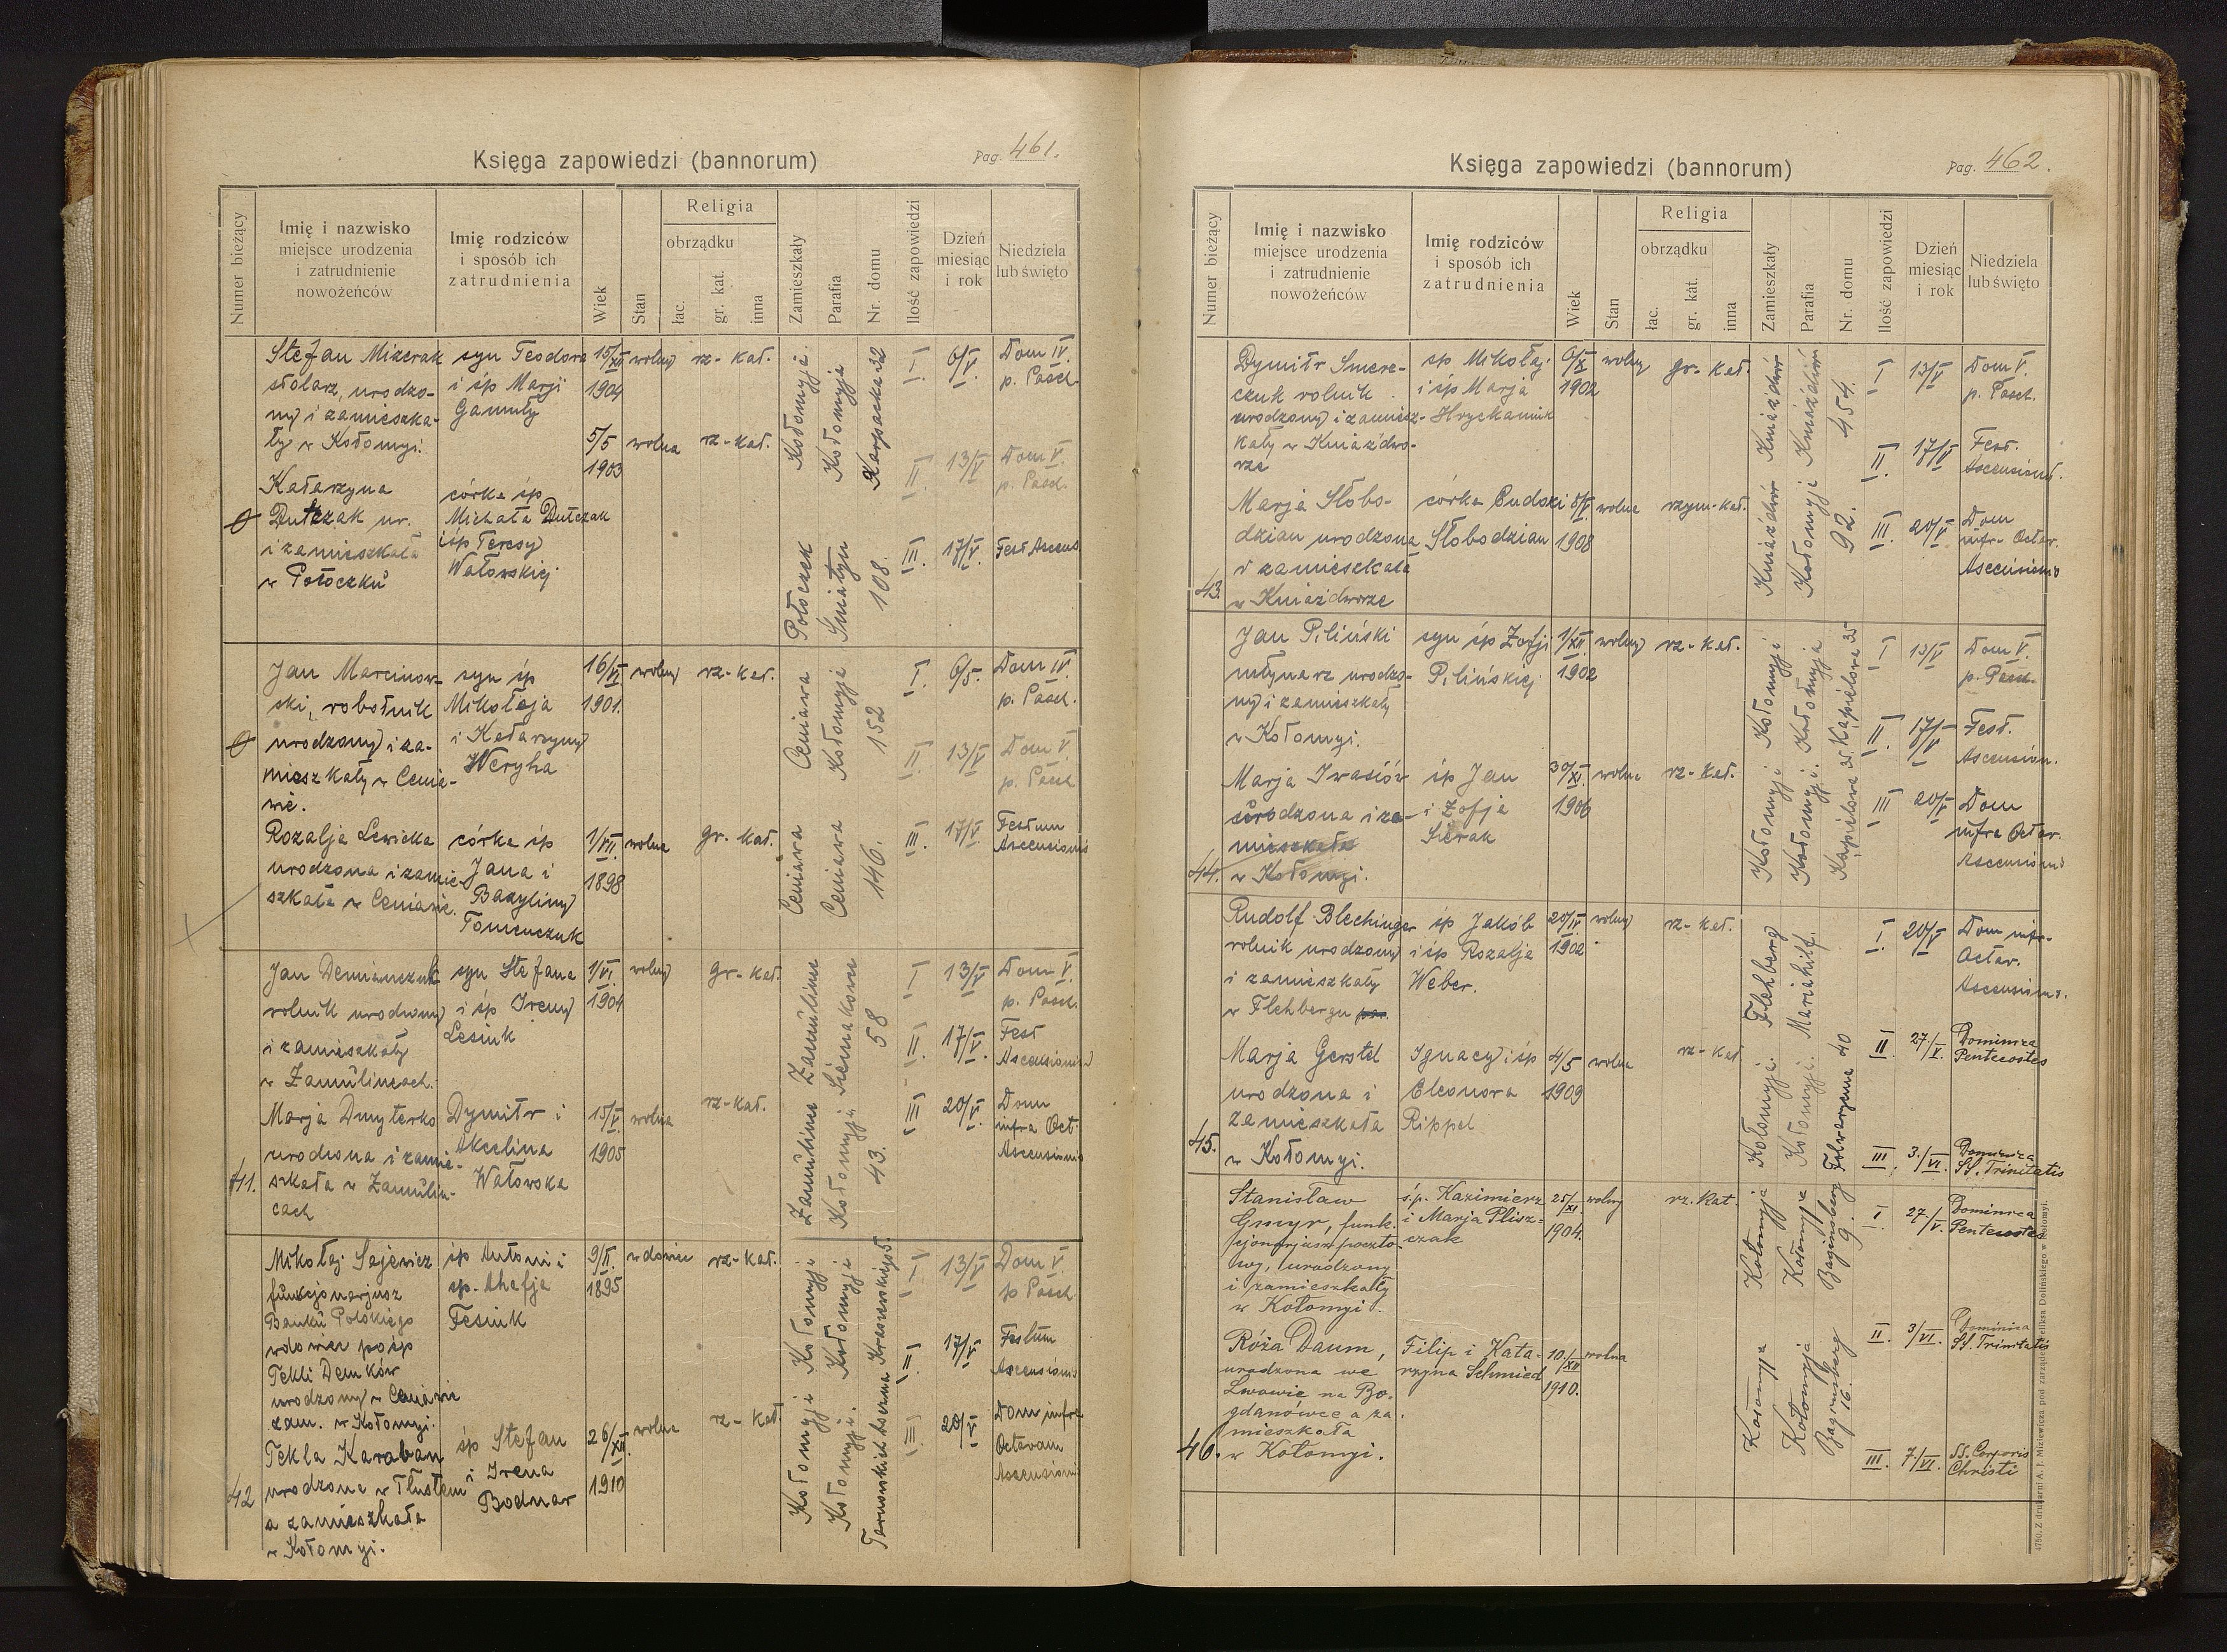 Księga zapowiedzi (bannorum)
Pag. 461.
Numer bieżący
Imię i nazwisko
miejsce urodzenia
i zatrudnienie
nowożeńców
Imię rodziców
i sposób ich
zatrudnienia
Wiek
Stan
Religia
obrządku
łac.
gr. kat.
inna
Zamieszkały
Parafia
Nr. domu
Ilość zapowiedzi
Dzień
miesiąc
i rok
Niedziela
lub święto
Stefan Mizerak
stolarz, urodzo-
ny i zamieszka-
ły w Kołomyi.
syn Teodora
i śp Marji
Gamuły
15/XII
1904
wolny
rz-kat.
Kołomyja
Kołomyja
Karpacka 32
I. 6/V. Dom IV.
p. Pasch.
II. 13/V Dom V.
p. Pasch.
III. 17/V. Fest Ascens.
Katarzyna
Dutczak ur.
i zamieszkała
w Potoczku
córka śp
Michała Dutczak
i śp Teresy
Wałowskiej
5/5
1903
wolna
rz-kat.
Potoczek
Śniatyn
108.
Jan Marcinow-
ski, robotnik
urodzony i za-
mieszkały w Cenia-
wie.
syn śp
Mikołaja
i Katarzyny
Weryha
16/VI
1901.
wolny
rz-kat.
Ceniawa
Kołomyja
152
I. 6/5. Dom IV.
p. Pasch.
II. 13/V Dom V.
p. Pasch
III. 17/V. Festum
Ascensionis
Rozalja Lewicka
urodzona i zamie-
szkała w Ceniawie.
córka śp
Jana i
Bazyliny
Tomenczuk
1/VII.
1898
wolna
gr. kat.
Ceniawa
Ceniawa
146.
41.
Jan Demianczuk
rolnik urodzony
i zamieszkały
w Zamulincach.
syn Stefana
i śp Ireny
Lesiuk
1/VI.
1904
wolny
gr-kat.
Zamulince
Siemakowce
58
I 13/V Dom V.
p. Pasch.
II. 17/V. Fest
Ascensionis
III 20/V. Dom
infra Oct.
Ascensionis
Marja Dmyterko
urodzona i zamie-
szkała w Zamulin-
cach
Dymitr i
Akcelina
Wałowska
15/V.
1905
wolna
rz-kat.
Zamulince
Kołomyji
43.
42
Mikołaj Sajewicz
funkcjonarjusz
Banku Polskiego
wdowiec po śp
Tekli Demków
urodzony w Ceniawie
zam. w Kołomyi.
śp Antoni i
śp. Ahafja
Fesiuk
9/II.
1895
wdowiec
rz-kat.
Kołomyji
Kołomyji
Kraszewskiego 5.
I 13/V Dom V.
p Pasch.
II. 17/V Festum
Ascensionis
III 20/V Dom infra
Octavam
Ascensionis
Tekla Karaban
urodzona w Tłustem
a zamieszkała
w Kołomyi.
śp Stefan
i Irena
Bodnar
26/XII
1910
wolna
rz-kat.
Kołomyji
Kołomyji.
Księga zapowiedzi (bannorum)
Pag. 462.
Numer bieżący
Imię i nazwisko
miejsce urodzenia
i zatrudnienie
nowożeńców
Imię rodziców
i sposób ich
zatrudnienia
Wiek
Stan
Religia
obrządku
łac.
gr. kat.
inna
Zamieszkały
Parafia
Nr. domu
Ilość zapowiedzi
Dzień
miesiąc
i rok
Niedziela
lub święto
43.
Dymitr Smere-
czuk rolnik
urodzony i zamiesz-
kały w Kniaźdwo-
rze
śp Mikołaj
i śp Marja
Hryckaniuk
6/X
1902
wolny
gr-kat.
Kniaźdwór
Kniaźdwór
454.
I 13/V Dom V.
p. Pasch.
II. 17/V Fest.
Ascensionis.
III 20/V Dom
infra Octav.
Ascensionis
Marja Słobo-
dzian urodzona
i zamieszkała
w Kniaźdworze
córka Eudoxi
Słobodzian
8/V
1908
wolna
rzym-kat.
Kniaźdwór
Kołomyji
92.
44.
Jan Piliński
młynarz urodzo-
ny i zamieszkały
w Kołomyi.
syn śp Zofji
Pilińskiej
1/XII
1902
wolny
rz-kat.
Kołomyji
Kołomyja
Kąpielowa 35
I 13/V Dom V.
p. Pasch.
II 17/V Fest.
Ascension.
III 20/V Dom
infra Octav.
Ascensionis
Marja Iwasiów
urodzona i za-
mieszkała
w Kołomyi.
śp Jan
i Zofja
Sierak
30/XI.
1906
wolna
rz-kat.
Kołomyji
Kołomyji.
Kąpielowa 35.
45.
Rudolf Blechinger
rolnik urodzony
i zamieszkały
w Flehbergu
śp Jakób
i śp Rozalja
Weber.
20/IV.
1902
wolny
rz-kat.
Flehberg
Mariahilf.
I. 20/V Dom infr-
Octav.
Ascensionis.
II 27/V. Dominica
Pentecostes
III. 3./VI. Dominica
SS. Trinitatis
Marja Gerstel
urodzona i
zamieszkała
w Kołomyi.
Ignacy i śp
Eleonora
Rippel
4/5
1909
wolna
rz-kat
Kołomyji
Kołomyji.
Folwarczna 40
46.
Stanisław
Gmyr, funk-
cjonarjusz poczto-
wy, urodzony
i zamieszkały
w Kołomyi.
ś.p. Kazimierz
i Marja Plisz-
czak
25/XI
1904.
wolny
rz. kat.
Kołomyja
Kołomyja
Baginsberg
9.
I 27./V. Dominica
Pentecostes
II. 3/VI. Dominica
SS. Trinitatis
III. 7./VI. SS. Corporis
Christi
Róża Daum,
urodzona we
Lwowie na Bo-
gdanówce a za-
mieszkała
w Kołomyi.
Filip i Kata-
rzyna Schmied
10./XII
1910.
wolna
Kołomyja
Kołomyja
Baginsberg
16.
4750. Z drukarni A. J. Miziewicza pod zarządem Feliksa Dolińskiego w Kołomyi.